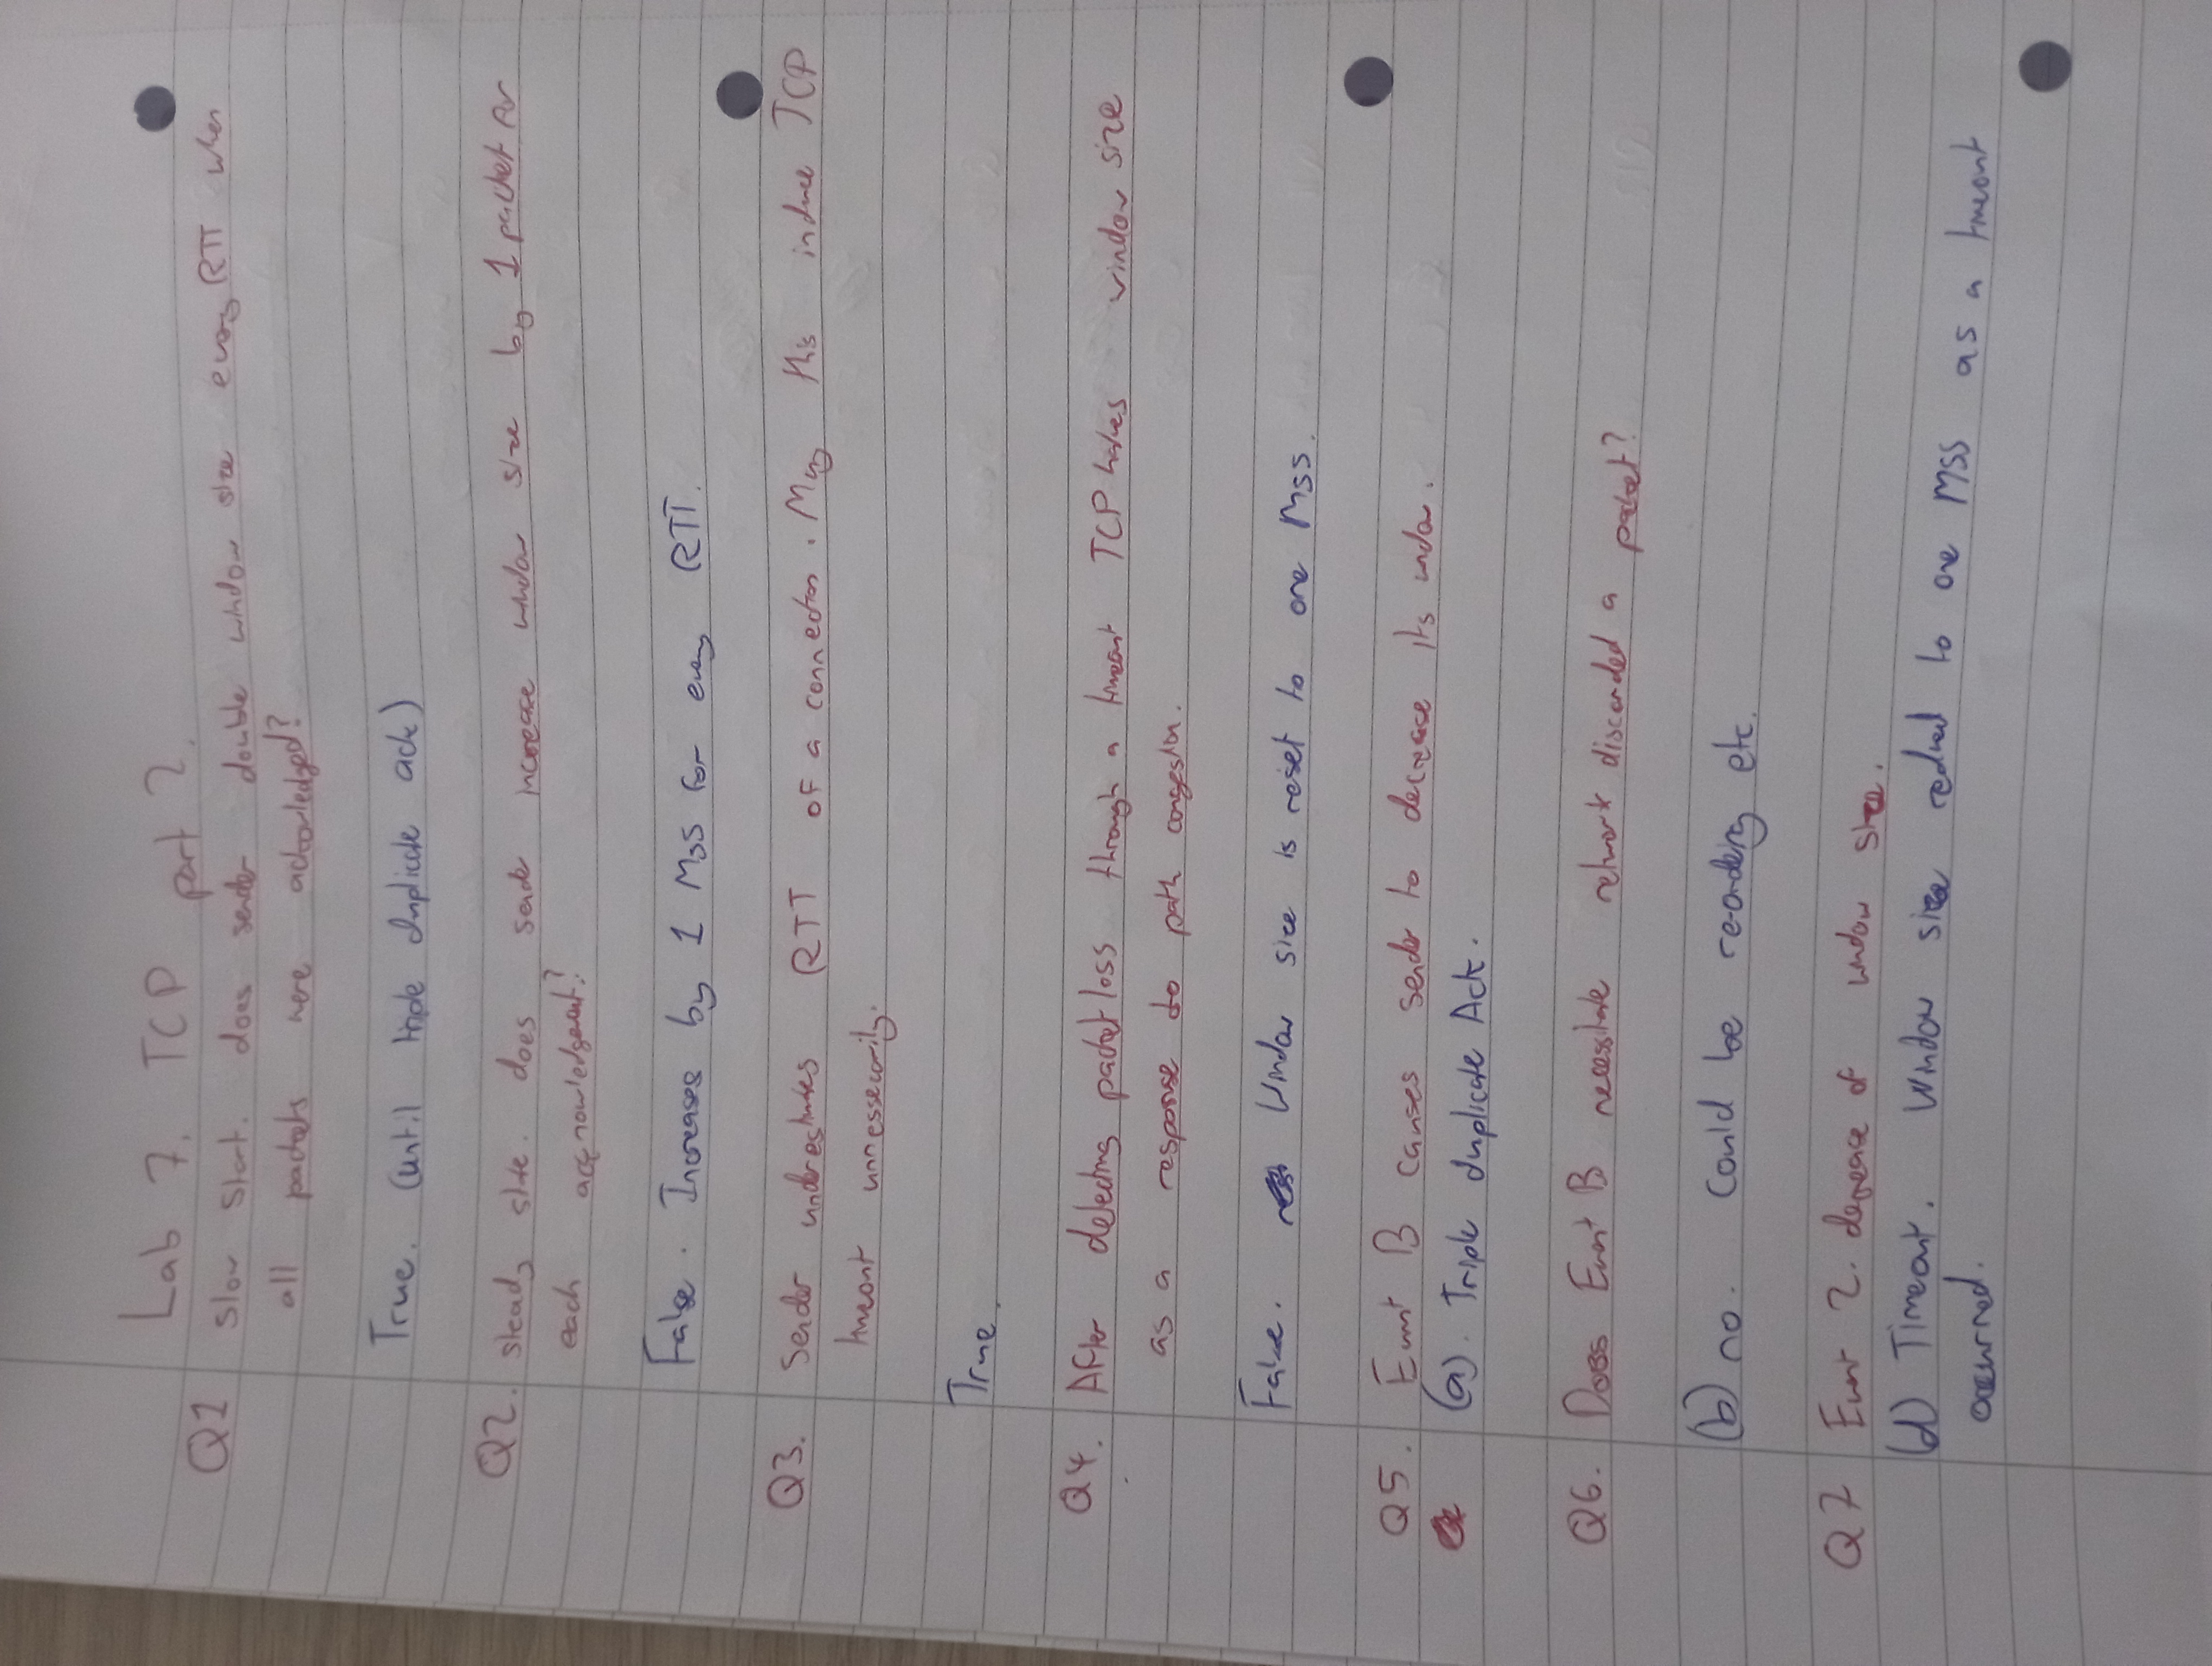 Lab 7. TCP part 2.
Q1 Slow Start. does sender double window size every RTT when
all packets were acknowledged?
True. (until triple duplicate ack)
Q2. steady state. does sender increase window size by 1 packet for
each acknowledgement?
False. Increases by 1 MSS for every RTT.
Q3. Sender underestimates RTT of a connection. May this induce TCP
timeout unnessecarily.
True.
Q4. After detecting packet loss through a timeout TCP halves window size
as a response to path congestion.
False. Window size is reset to one MSS.
Q5. Event B causes sender to decrease its window.
(a). Triple duplicate Ack.
Q6. Does Event B necessitate network discarded a packet?
(b) no. Could be re-ordering etc.
Q7 Event 2. decrease of window size.
(d) Timeout. Window size reduced to one MSS as a timeout
occurred.